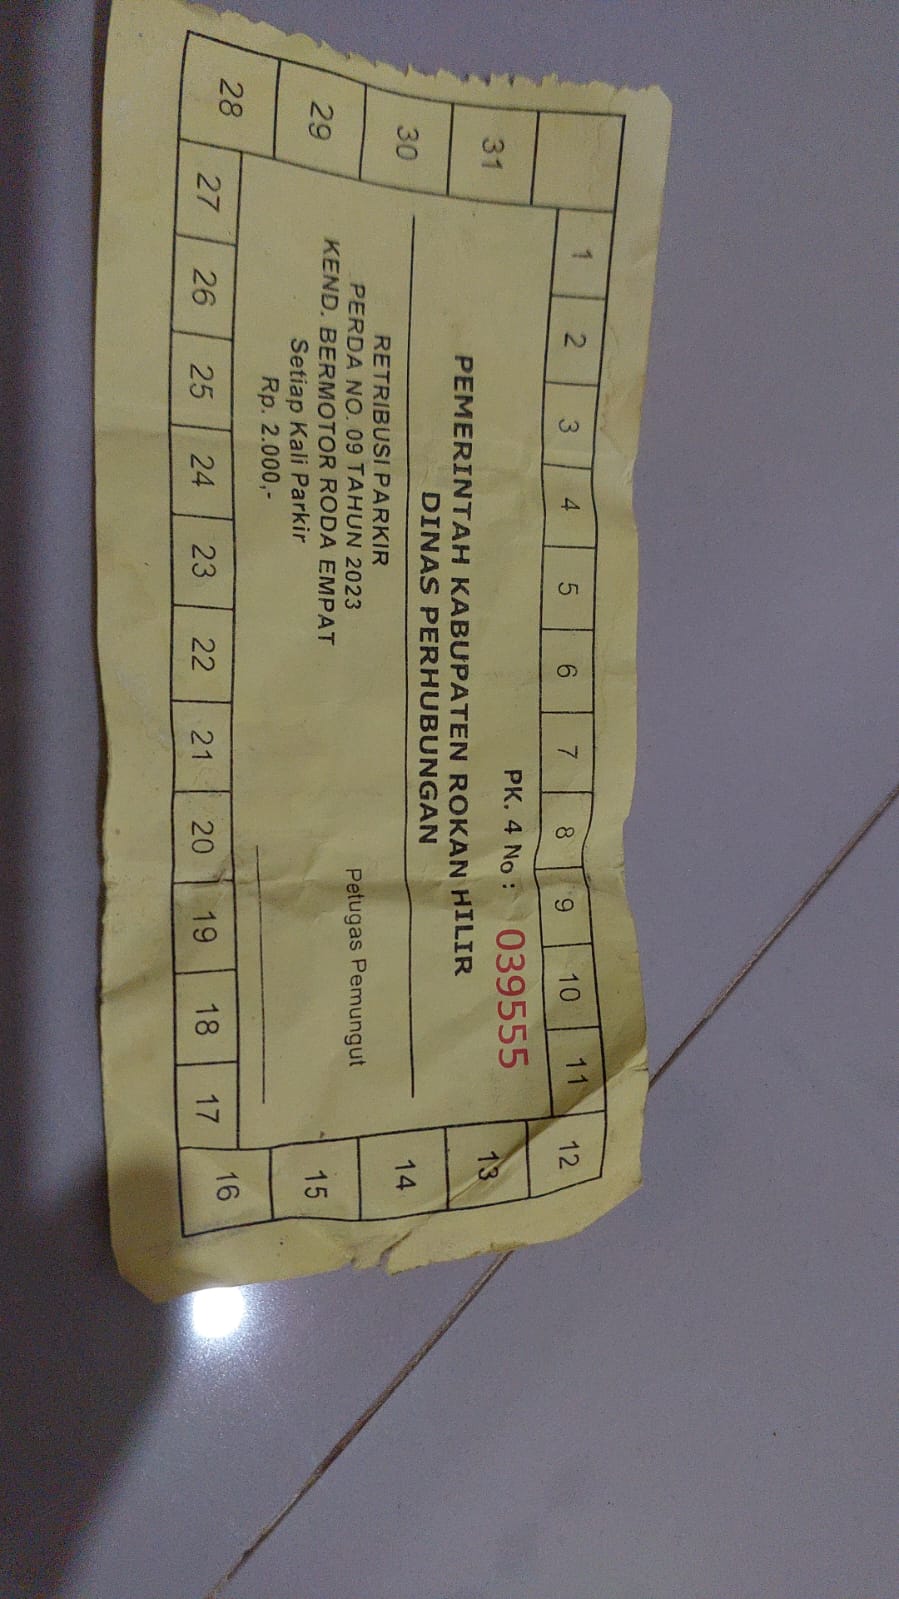 1 2 3 4 5 6 7 8 9 10 11 12
PK. 4 No : 039555
31 13
PEMERINTAH KABUPATEN ROKAN HILIR
DINAS PERHUBUNGAN
30 14
RETRIBUSI PARKIR
PERDA NO. 09 TAHUN 2023 Petugas Pemungut
KEND. BERMOTOR RODA EMPAT
29 15
Setiap Kali Parkir
Rp. 2.000,-
28 27 26 25 24 23 22 21 20 19 18 17 16